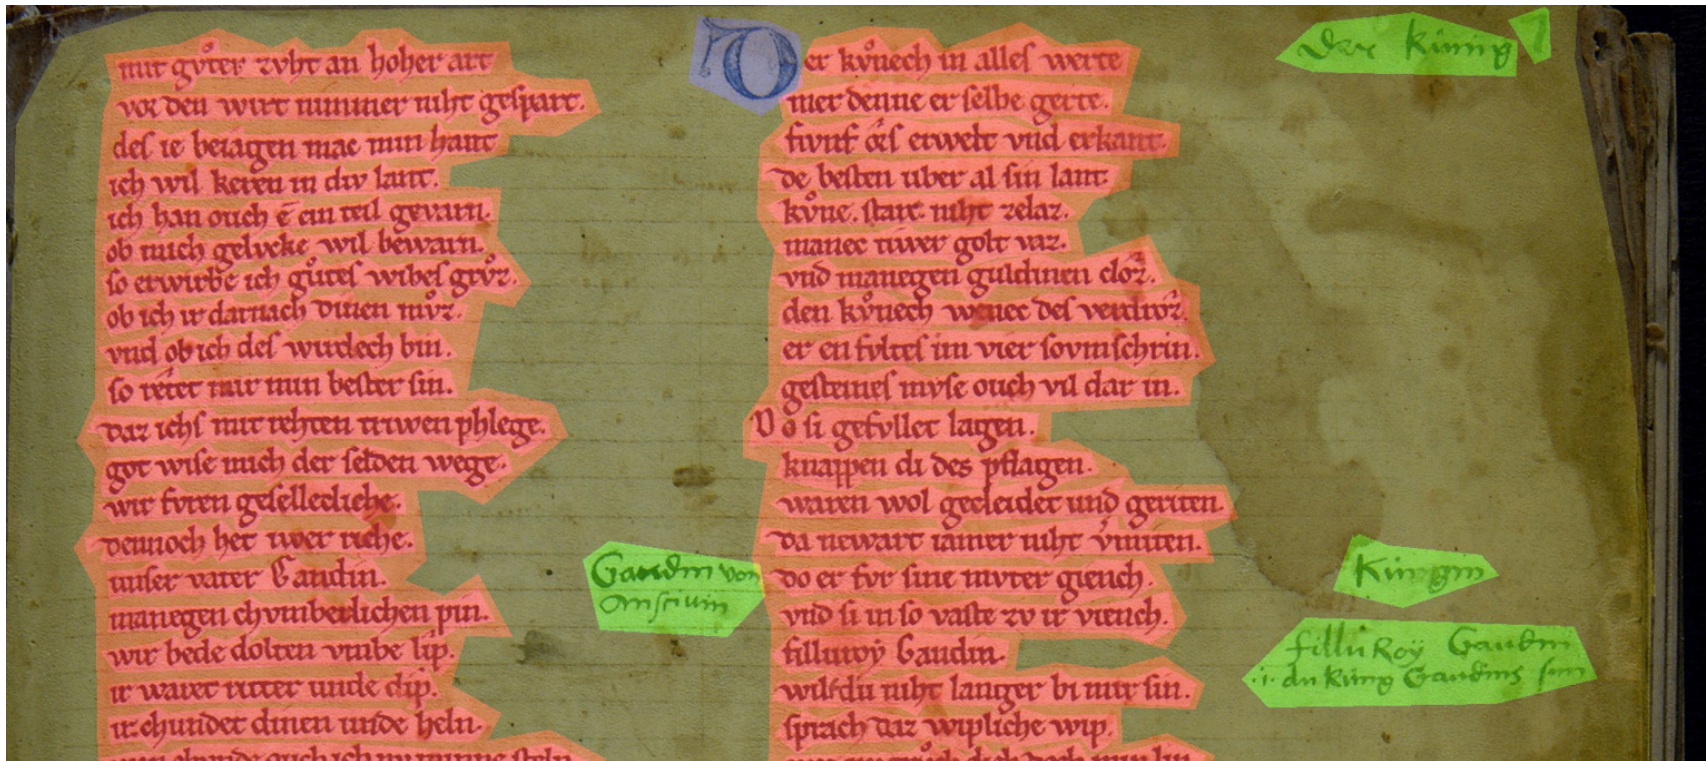 mit gůter zvht an hoher art
vor den wirt nimmer niht gespart.
des ie beiagen mac min hant
ich wil keren in div lant.
ich han ouch ē ein teil gevarn.
ob mich gelvcke wil bewarn.
so erwirbe ich gůtes wibes grůz.
ob ich ir darnach dinen můz.
vnd ob ich des wirdech bin.
so retet mir min bester sin.
daz ichs mit rehten triwen phlege.
got wise mich der selden wege.
wir fvren gesellecliche.
dennoch het iwer riche.
unser vater Gandin.
manegen chvmberlichen pin.
wir bede dolten vmbe lip.
ir waret ritter unde dip.
ir chundet dinen unde heln.
Gandin von
Anscivin
Der küning
Der kůnech in alles werte
mer denne er selbe gerte.
fivnf ors erwelt vnd erkant.
de besten uber al sin lant.
kůne. starc niht zelaz.
manec tiwer golt vaz.
vnd manegen guldinen cloz.
den kůnech wenec des verdroz.
er en fvltes im vier sovmschrin.
gesteines mvse ouch vil dar in.
Do si gefvllet lagen.
knappen di des pflagen.
waren wol gecleidet und geriten.
da newart iamer niht vmiten.
do er fvr sine mvter giench.
vnd si in so vaste zv ir viench.
filluroy Gandin.
wildu niht langer bi mir sin.
sprach daz wipliche wip.
Küngin
fillu Roy Gandin
.i. du küng Gandins sun